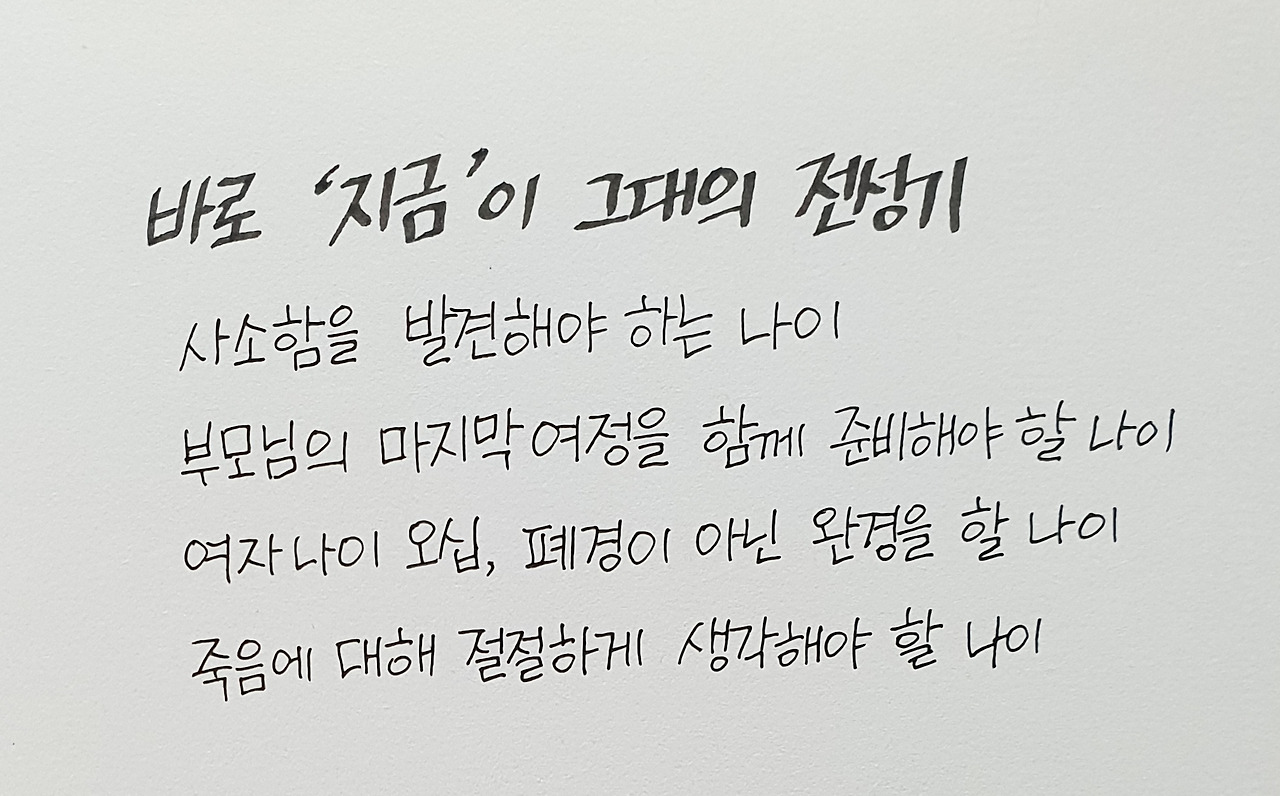 바로 ‘지금’이 그대의 전성기
사소함을 발견해야 하는 나이
부모님의 마지막 여정을 함께 준비해야 할 나이
여자나이 오십, 폐경이 아닌 완경을 할 나이
죽음에 대해 절절하게 생각해야 할 나이